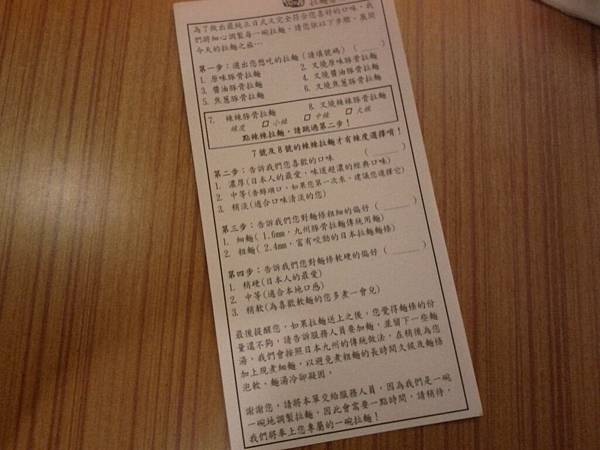 為了做出最純正日式又完全符合您喜好的口味，我
們將細心調製每一碗拉麵，請您依以下步驟，展開
今天的拉麵之旅…
第一步：選出您想吃的拉麵（請填號碼）（　　）
1. 原味豚骨拉麵　2. 叉燒豚骨拉麵
3. 醬油豚骨拉麵　4. 叉燒醬油豚骨拉麵
5. 焦蔥豚骨拉麵　6. 叉燒焦蔥豚骨拉麵
7. 辣辣豚骨拉麵　8. 叉燒辣辣豚骨拉麵
辣度　□小辣　□中辣　□大辣
點辣辣拉麵，請跳過第二步！
7號及8號的辣辣拉麵才有辣度選擇唷！
第二步：告訴我們您喜歡的口味（　　）
1. 濃厚(日本人的最愛，味道超濃的經典口味)
2. 中等(香醇順口，如果您第一次來，建議您選擇它)
3. 稍淡(適合口味清淡的您)
第三步：告訴我們您對麵條粗細的偏好（　　）
1. 細麵( 1.6mm，九州豚骨拉麵傳統用麵)
2. 粗麵( 2.4mm，富有咬勁的日本拉麵麵條)
第四步：告訴我們您對麵條軟硬的偏好（　　）
1. 稍硬(日本人的最愛)
2. 中等(適合本地口感)
3. 稍軟(為喜歡軟麵的您多煮一會兒)
最後提醒您，如果拉麵送上之後，您覺得麵條的份
量還不夠，請告訴服務人員要加麵，並留下一些麵
湯，我們會按照日本九州的傳統做法，在稍後為您
加上現煮細麵，以避免煮粗麵的長時間久候及麵條
泡軟、麵湯冷卻凝固。
謝謝您，請將本單交給服務人員，因為我們是一碗
一碗地調製拉麵，因此會需要一點時間，請稍待，
我們將奉上您專屬的一碗拉麵！